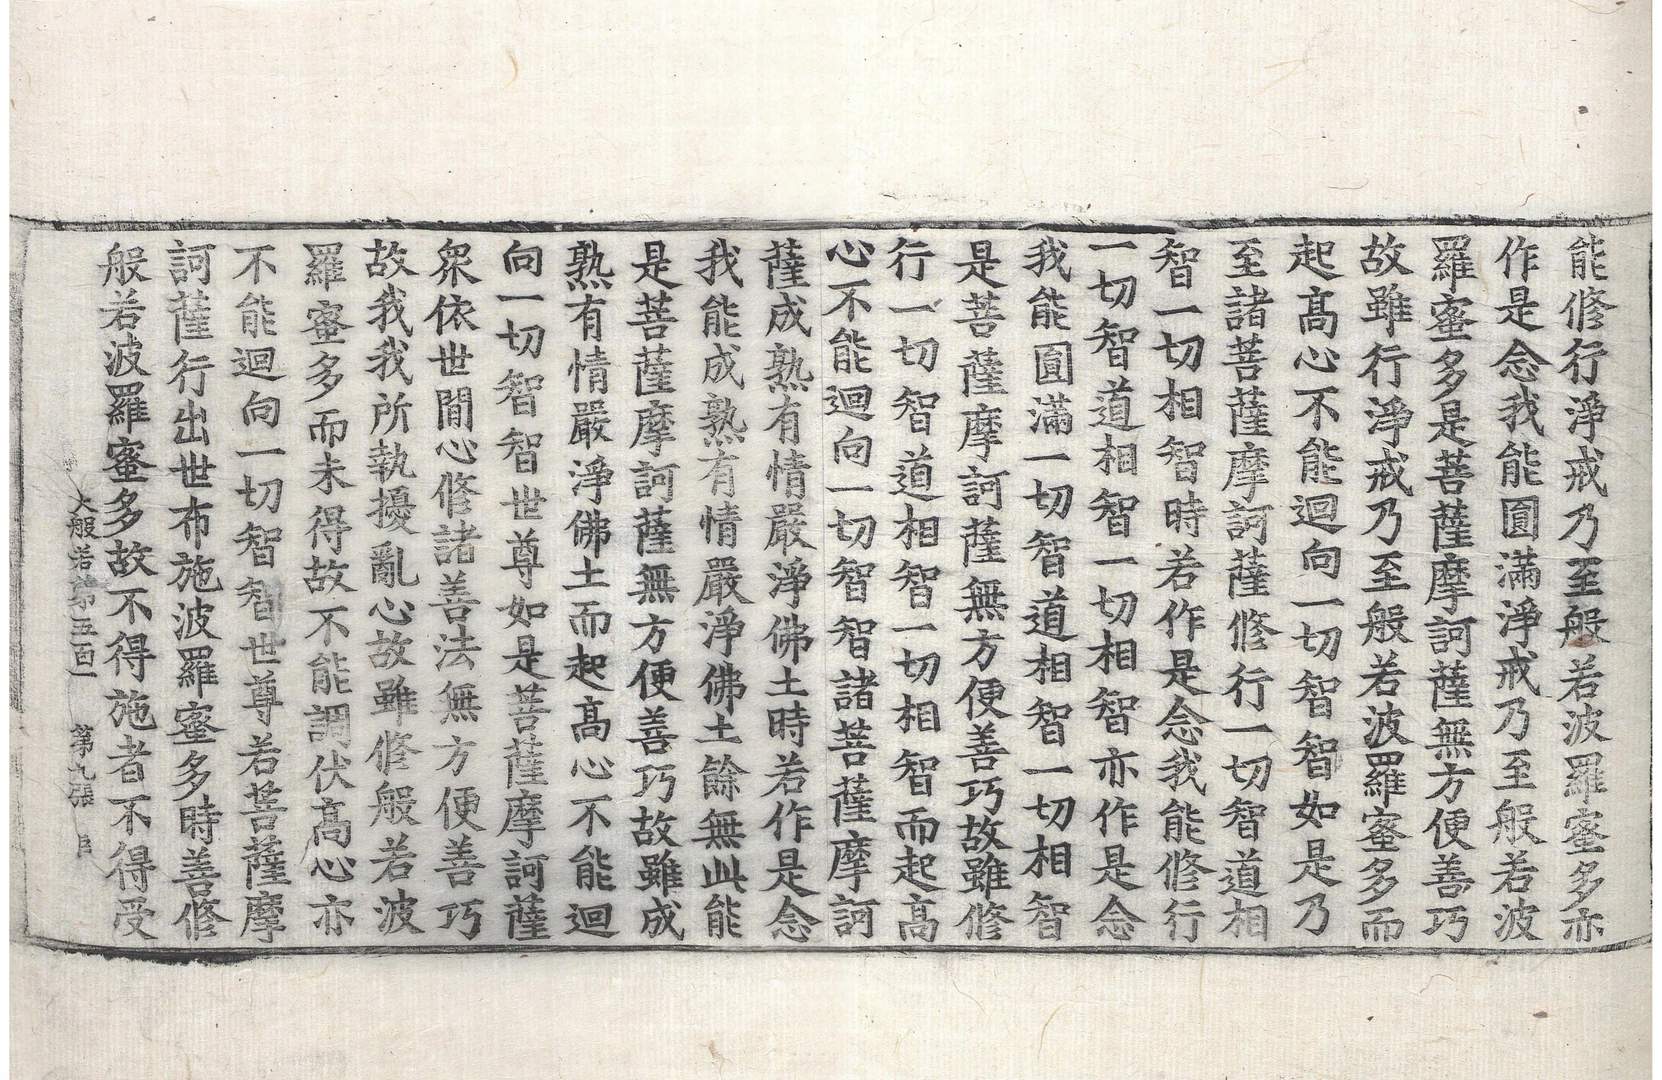 能修行淨戒乃至般若波羅蜜多亦
作是念我能圓滿淨戒乃至般若波
羅蜜多是菩薩摩訶薩無方便善巧
故雖行淨戒乃至般若波羅蜜多而
起髙心不能迴向一切智智如是乃
至諸菩薩摩訶薩修行一切智道相
智一切相智時若作是念我能修行
一切智道相智一切相智亦作是念
我能圓滿一切智道相智一切相智
是菩薩摩訶薩無方便善巧故雖修
行一切智道相智一切相智而起髙
心不能迴向一切智智諸菩薩摩訶
薩成熟有情嚴淨佛土時若作是念
我能成熟有情嚴淨佛土餘無此能
是菩薩摩訶薩無方便善巧故雖成
熟有情嚴淨佛土而起髙心不能迴
向一切智智世尊如是菩薩摩訶薩
衆依世間心修諸善法無方便善巧
故我我所執擾亂心故雖修般若波
羅蜜多而未得故不能調伏髙心亦
不能迴向一切智智世尊若菩薩摩
訶薩行出世布施波羅蜜多時善修
般若波羅蜜多故不得施者不得受
大般若第五百一 第九張